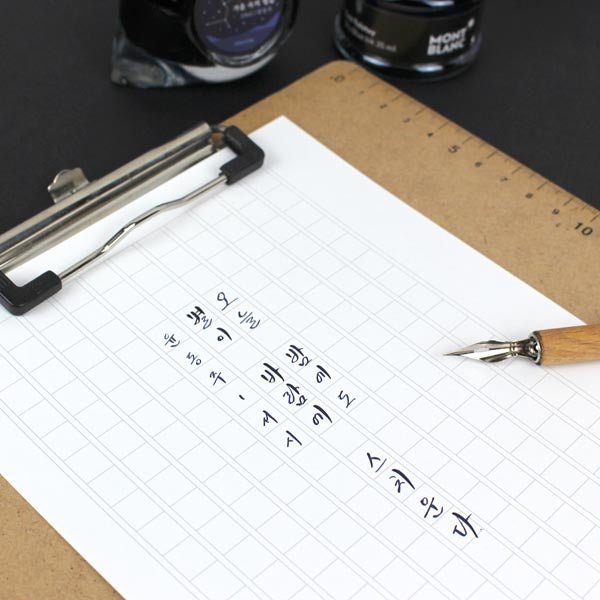 오늘 밤에도
별이 바람에 스치운다
윤동주, 서시
MONT
BLANC
35 ml
0 5 10